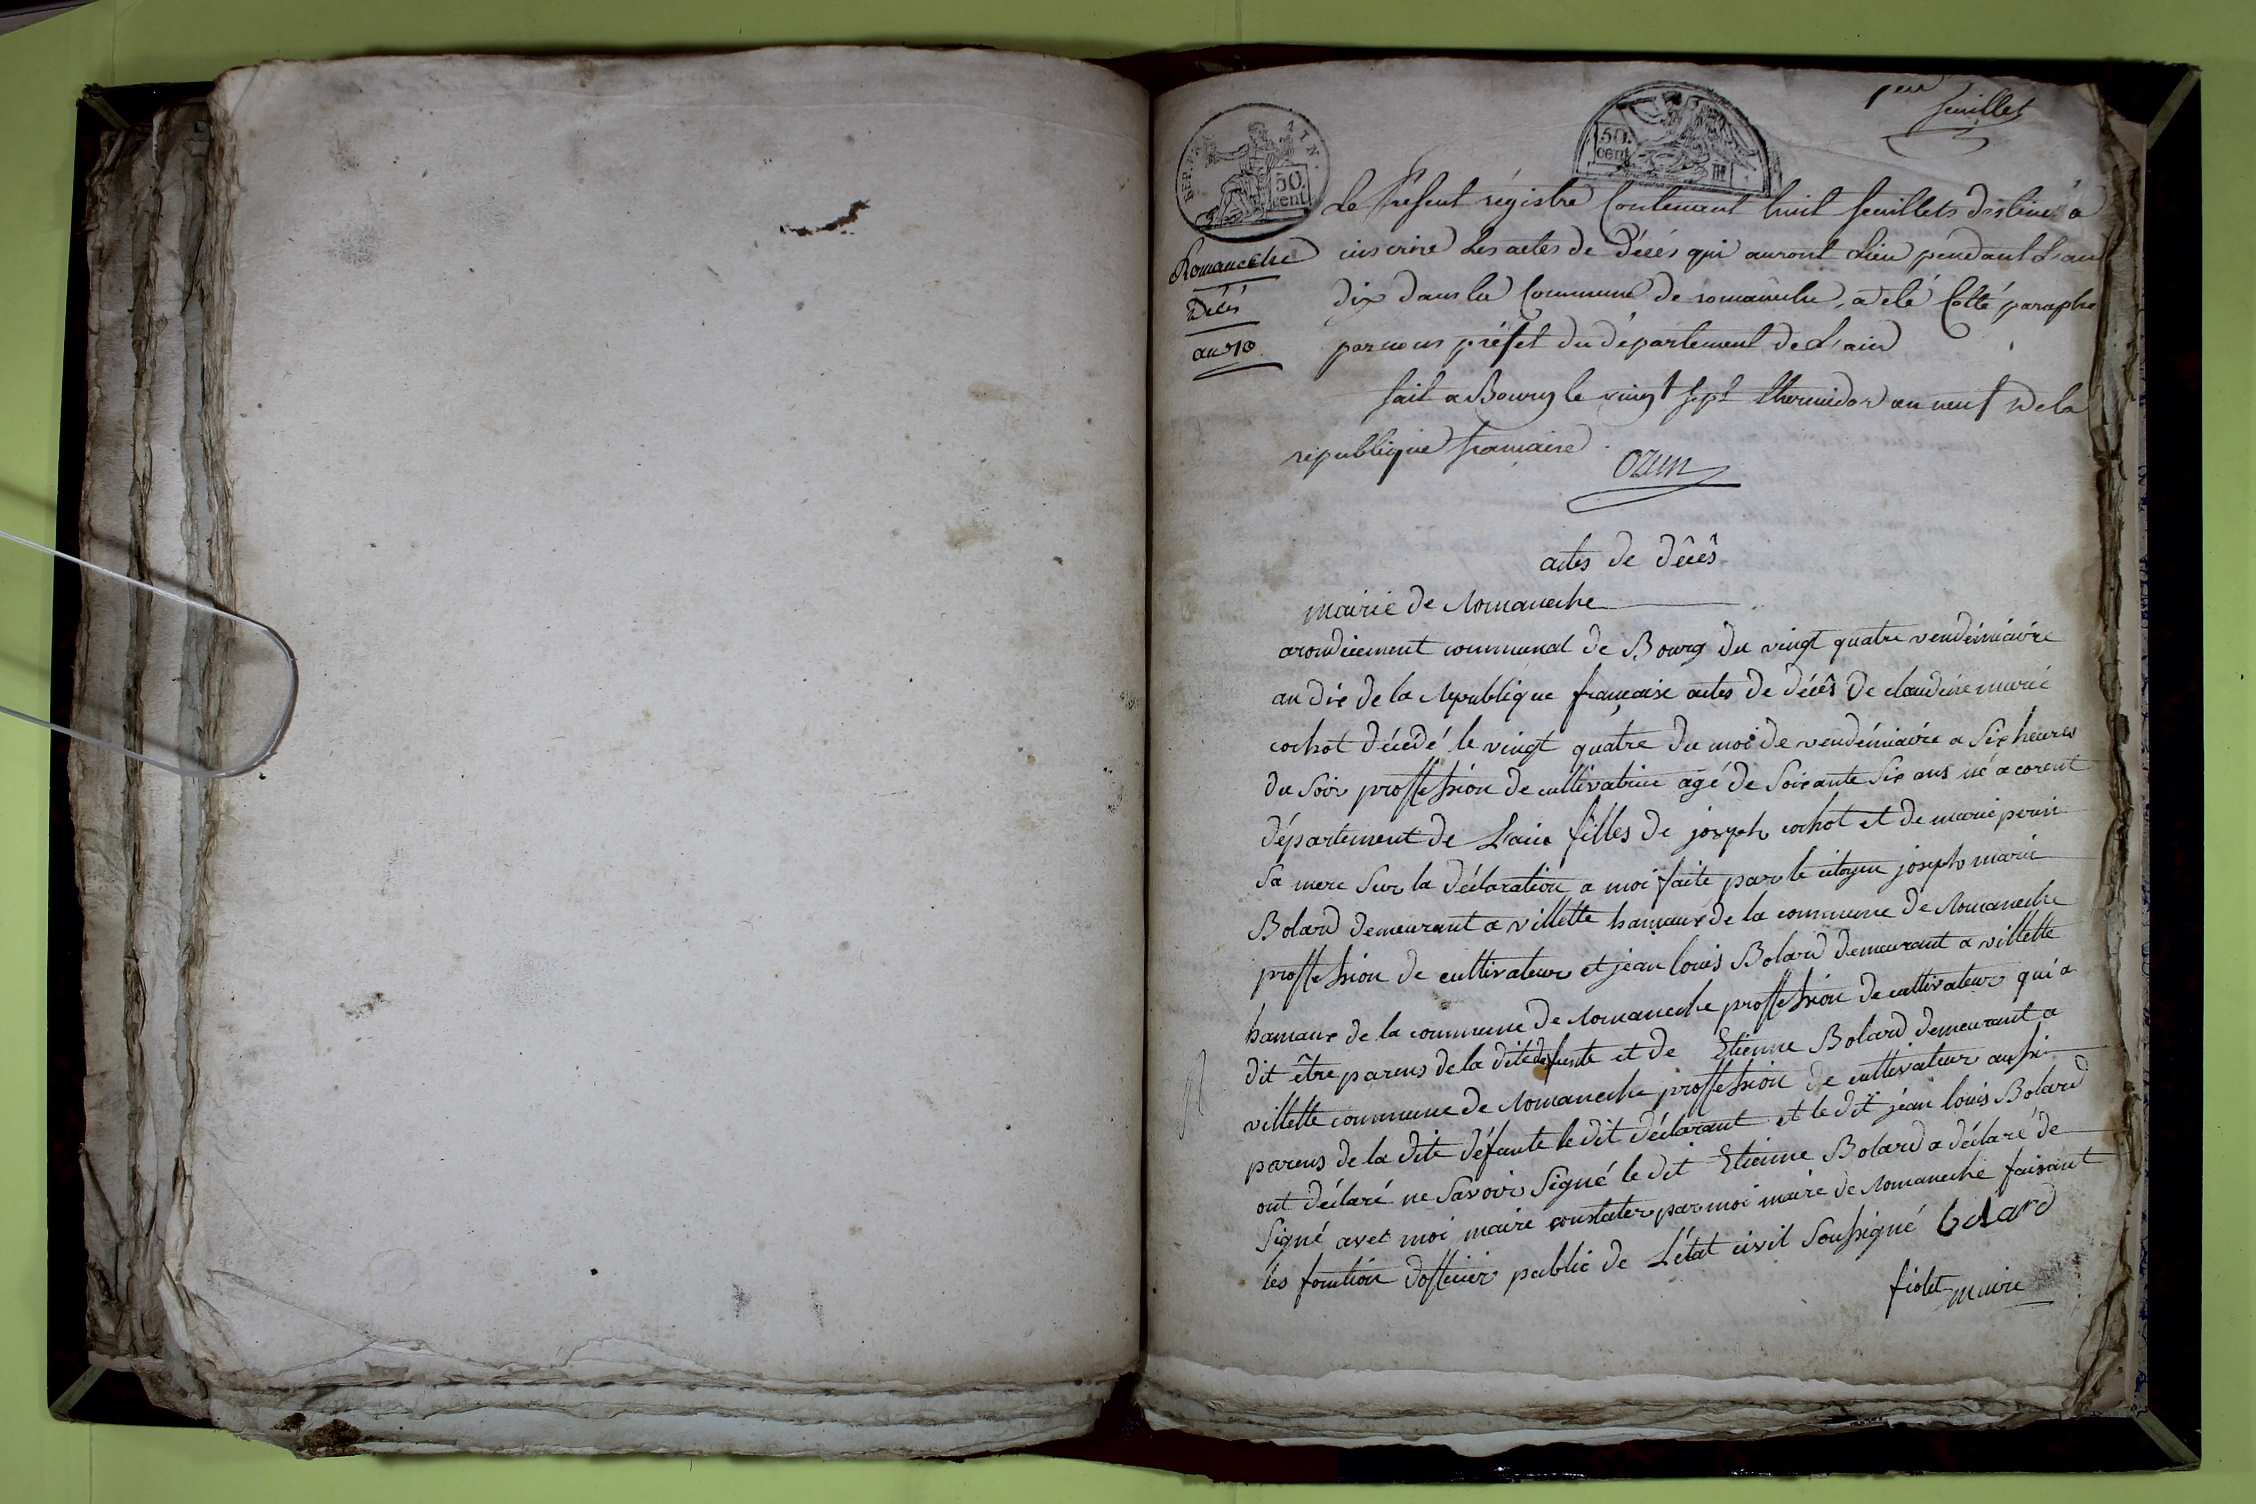 1er
feuillet
DEP. DE L'AIN
50. cent
50. cent
Le Présent régistre Contenant huit feuillets destiné à
inscrire Les actes de Décés qui auront Lieu pendant L'an
dix dans la Commune de romanêche, a eté Cotté paraphe
par nous préfet du département de L'ain
fait a Bourg le vingt sept thermidor an neuf de la
republique francaise
Ozun
Romanêche
Décés
an 10
actes de décês
mairie de Romaneche
arondicement communal de Bourg du vingt quatre vendémiaire
an dix de la République française actes de décês de claudine marie
cochot décedé le vingt quatre du moi de vendémiaire a Six heures
du Soir proffession de cultivatrice agé de Soixante Six ans né a corent
département de L'ain filles de joseph cochot et de marie perin
Sa mere Sur la déclaration a moi faite par le citoyen joseph marie
Bolard demeurant a villette hamaux de la commune de Romaneche
proffession de cultivateur et jean louis Bolard demeurant a villette
hamaux de la commune de Romaneche proffession de cultivateur qui a
dit être parens de la dite défunte et de Etienne Bolard demeurant a
villette commune de Romaneche proffession de cultivateur aussi
parens de la dite défunte le dit déclarant et le dit jean louis Bolard
ont déclaré ne Savoir Signé le dit Etienne Bolard a déclaré de
Signé avec moi maire constater par moi maire de Romaneche faisant
les fonction d'officier public de L'état civil Soussigné bolard
fiolet maire